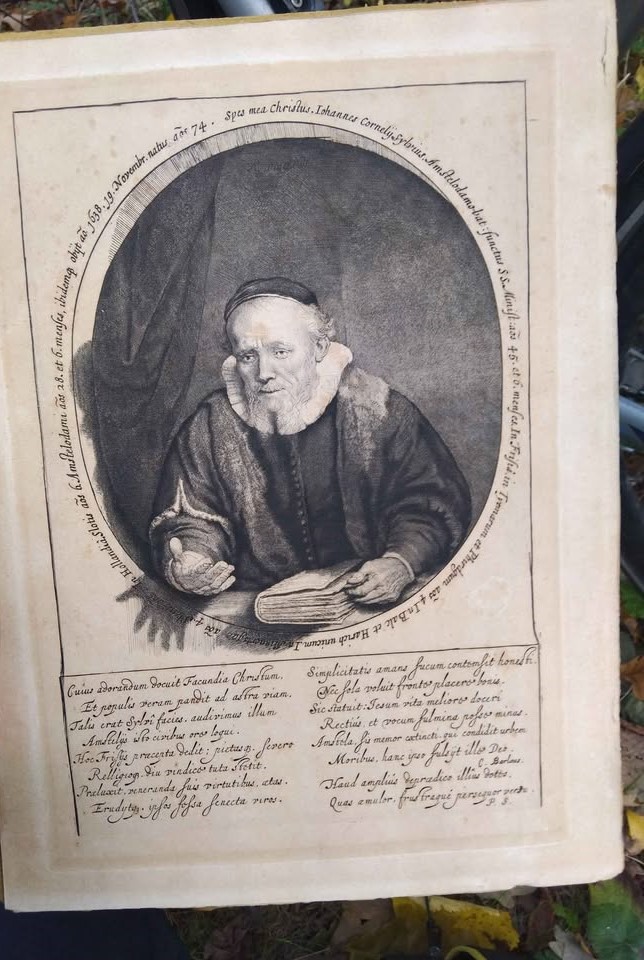 Spes mea Christus. Iohannes Cornelij Sylvius, Amstelodamobat: functus S.S. Minist: aos 45. et 6. menses. In Frisia in Tyemarum et Phirdgum aos 4. In Balc et Harich unicum. In aos 4. In Hollandia Slotis aos 6 Amstelodami aos 28. et 6. menses, ibidemq obijt ao 1638. 19. Novembr. natus aos 74.
Cuius adorandum docuit Facundia Christum,
Et populis veram pandit ad astra viam,
Talis erat Sylvî facies. audivimus illum
Amstelijs isto civibus ore loqui.
Hoc Frisijs præcepta dedit; pietasq severo
Relligioq diu vindice tuta stetit.
Præluxit, veneranda suis virtutibus, ætas.
Erudytq ipsos fessa senecta viros.
Simplicitatis amans fucum contemsit honesti.
Nec sola voluit fronte placere bonis.
Sic statuit: Iesum vita meliore doceri
Rectiùs, et vocum fulmina posse minus.
Amstela, sis memor extincti, qui condidit urbem
Moribus, hanc ipso fulsyt ille Deo.
C. Barlæus.
Haud amplius deprædico illius dotes,
Quas æmulor, frustraque persequor versu.
P. S.